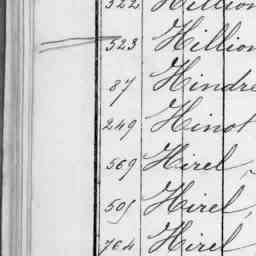 322 Hillion
523 Hillion
87 Hindre
249 Hinot
569 Hirel,
501 Hirel,
764 Hirel